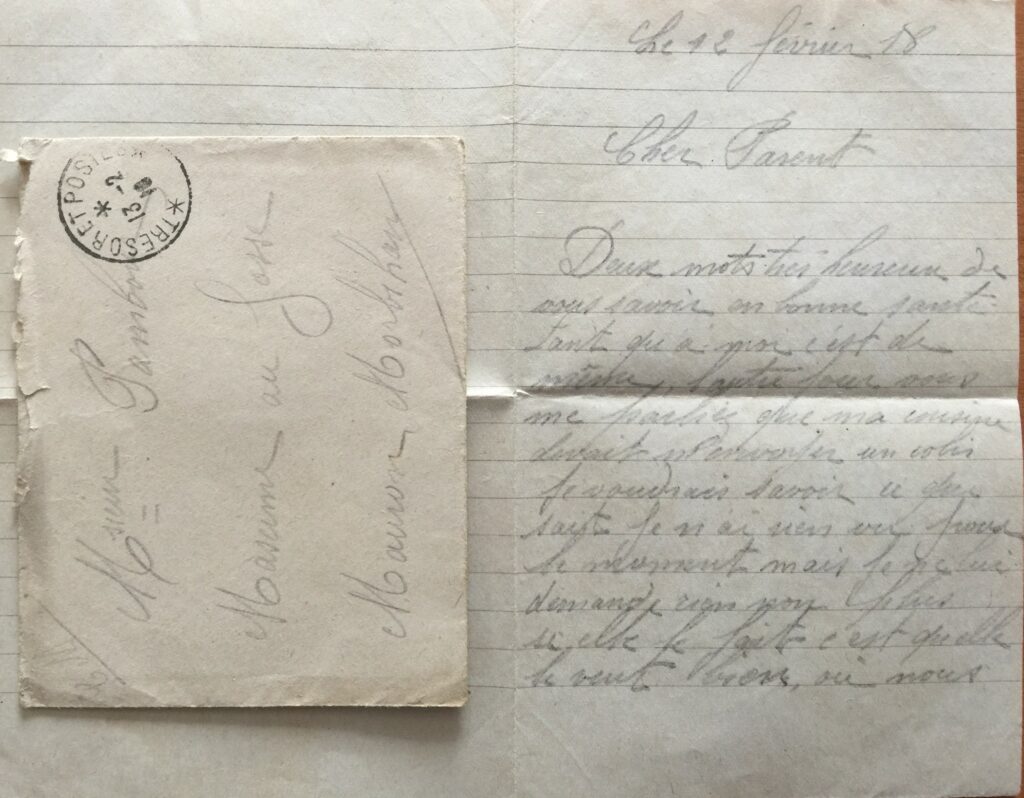 Le 12 février 18
Cher Parent
Deux mots très heureux de
vous savoir en bonne santé
tant qu'a moi c'est de
même, l'autre jour vous
me parliez que ma cousine
devait m'envoyer un colis
je voudrais savoir ce que
sait je n'ai rien vu pour
le moment mais je ne lui
demande rien non plus
si elle le fait c'est qu'elle
le veut bien, où nous
TRESOR ET POSTES
13 -2
Msieur
Maxime au
Mauron Morbihan